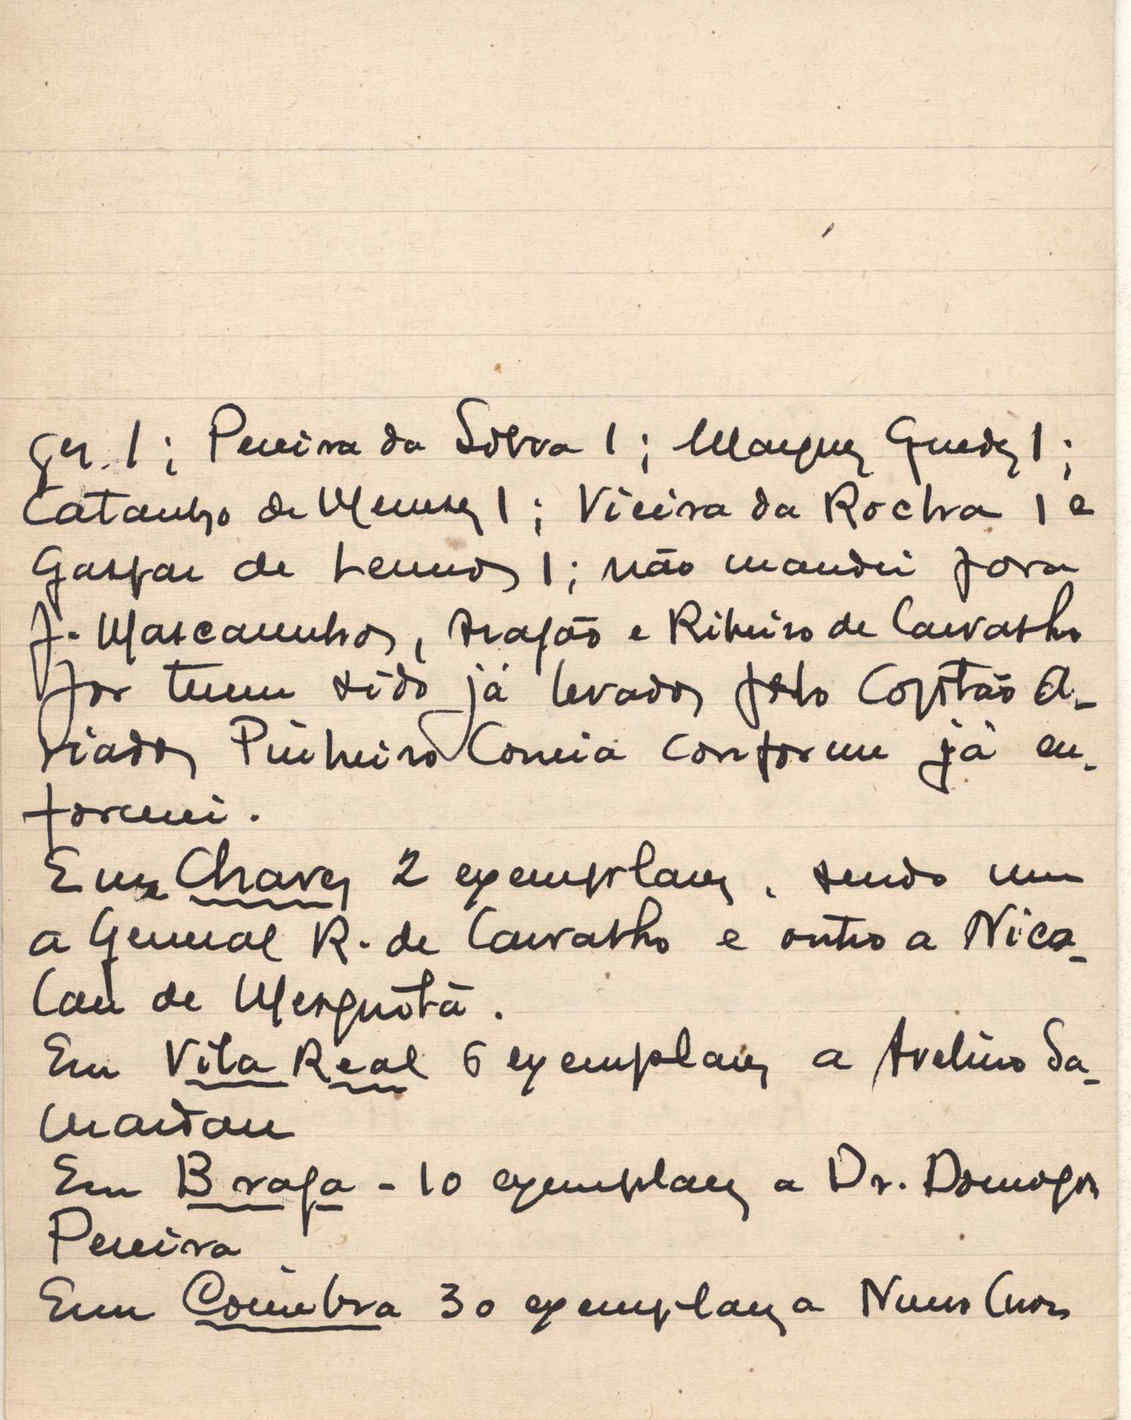 ges. 1; Pereira da Silva 1; Marques Guedes 1;
Catanho de Meneses 1; Vieira da Rocha 1 e
Gaspar de Lemos 1; não mandei para
J. Mascarenhas, Aragão e Ribeiro de Carvalho
por terem sido já levados pelo Capitão
Pinheiro Correia conforme já in-
formei.
Em Chaves 2 exemplares, sendo um
a General R. de Carvalho e outro a Nico-
lau de Mesquita.
Em Vila Real 6 exemplares a Avelino Sa-
mardan
Em Braga - 10 exemplares a Dr. Domingos
Pereira
Em Coimbra 30 exemplares a Nuno Cruz